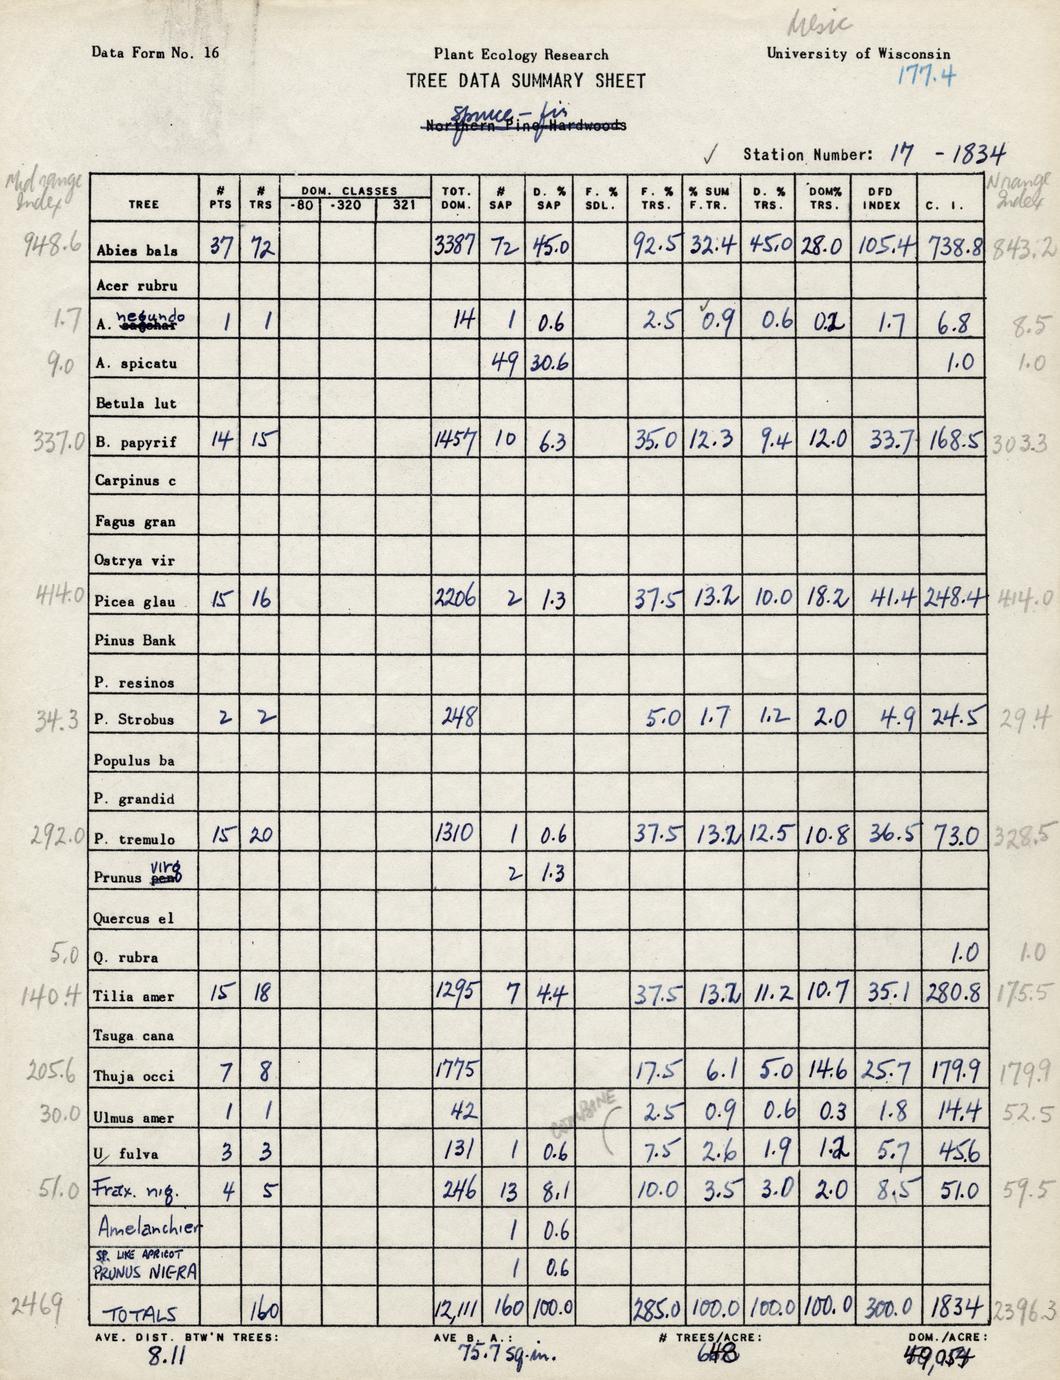 Mesic
Data Form No. 16 Plant Ecology Research University of Wisconsin
TREE DATA SUMMARY SHEET 177.4
Spruce - fir
Northern Pine Hardwoods
✓ Station Number: 17 - 1834
Mid range Index TREE # PTS # TRS DOM. CLASSES -80 -320 321 TOT. DOM. # SAP D. % SAP F. % SDL. F. % TRS. % SUM F.TR. D. % TRS. DOM% TRS. DFD INDEX C. I. N range Index
948.6 Abies bals 37 72 3387 72 45.0 92.5 32.4 45.0 28.0 105.4 738.8 843.2
Acer rubru
1.7 A. negundo 1 1 14 1 0.6 2.5 ✓ 0.9 0.6 0.2 1.7 6.8 8.5
9.0 A. spicatu 49 30.6 1.0 1.0
Betula lut
337.0 B. papyrif 14 15 1457 10 6.3 35.0 12.3 9.4 12.0 33.7 168.5 303.3
Carpinus c
Fagus gran
Ostrya vir
414.0 Picea glau 15 16 2206 2 1.3 37.5 13.2 10.0 18.2 41.4 248.4 414.0
Pinus Bank
P. resinos
34.3 P. Strobus 2 2 248 5.0 1.7 1.2 2.0 4.9 24.5 29.4
Populus ba
P. grandid
292.0 P. tremulo 15 20 1310 1 0.6 37.5 13.2 12.5 10.8 36.5 73.0 328.5
Prunus virg 2 1.3
Quercus el
5.0 Q. rubra 1.0 1.0
140.4 Tilia amer 15 18 1295 7 4.4 37.5 13.2 11.2 10.7 35.1 280.8 175.5
Tsuga cana
205.6 Thuja occi 7 8 1775 17.5 6.1 5.0 14.6 25.7 179.9 179.9
30.0 Ulmus amer 1 1 42 COMBINE 2.5 0.9 0.6 0.3 1.8 14.4 52.5
U. fulva 3 3 131 1 0.6 7.5 2.6 1.9 1.2 5.7 45.6
51.0 Frax. nig. 4 5 246 13 8.1 10.0 3.5 3.0 2.0 8.5 51.0 59.5
Amelanchier 1 0.6
SP. LIKE APRICOT
PRUNUS NIGRA 1 0.6
2469 TOTALS 160 12,111 160 100.0 285.0 100.0 100.0 100.0 300.0 1834 2396.3
AVE. DIST. BTW'N TREES: AVE B. A.: # TREES/ACRE: DOM./ACRE:
8.11 75.7 sq. in. 648 49,054